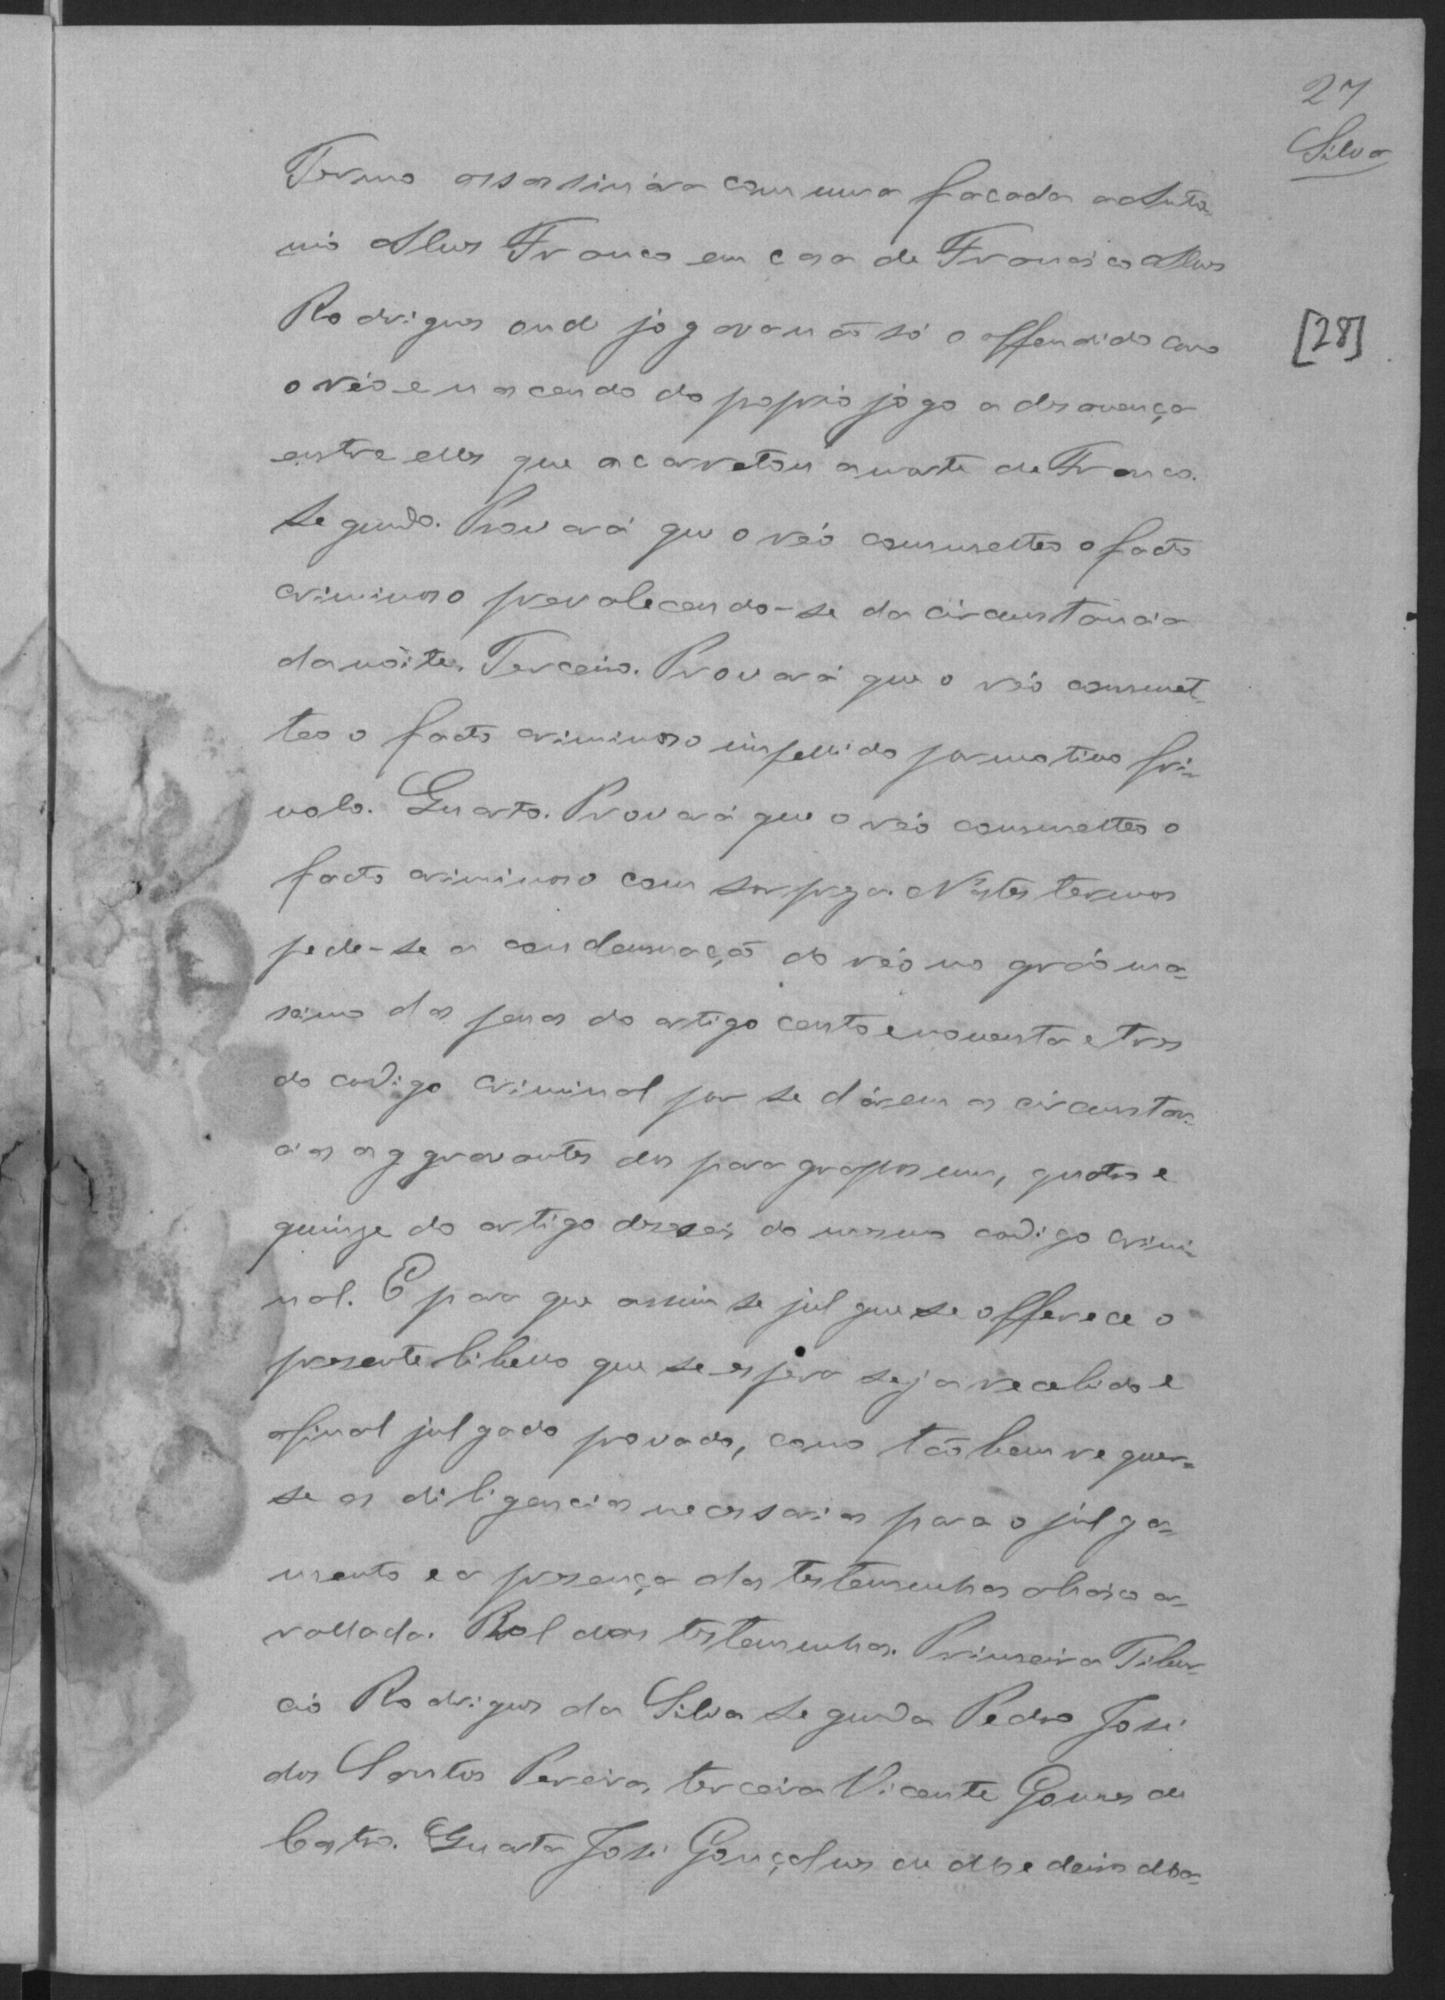 27
Silva
Termo assassinára com uma facada a Anto-
nio Alves Franco em casa de Francisco Alves
Rodrigues onde jogavam não só o offendido como
[28]
o réo e nascendo do proprio jogo a desavença
entre elles que acarretou a morte de Franco.
Segundo. Provará que o réo commetteo o facto
criminoso prevalecendo-se da circunstancia
da noite. Terceiro. Provará que o réo commet-
teo o facto criminoso impellido por motivo fri-
volo. Quarto. Provará que o réo commetteo o
facto criminoso com sorpreza. Nestes termos
pede-se a condemnação do réo no gráo ma-
ximo das penas do artigo cento e noventa e tres
do codigo criminal por se dárem as circunstan-
cias aggravantes dos paragraphos um, quatro e
quinze do artigo deseseis do mesmo codigo crimi-
nal. E para que assim se julgue se offerece o
presente libello que se espera seja recebido e
afinal julgado provado, como tão bem requer-
se as diligencias necessarias para o julga-
mento e a presença das testemunhas abaixo ar-
rollada. Rol das testemunhas. Primeira Tibur-
cio Rodrigues da Silva segunda Pedro José
dos Santos Pereira terceira Vicente Gomes de
Castro. Quarta José Gonçalves de